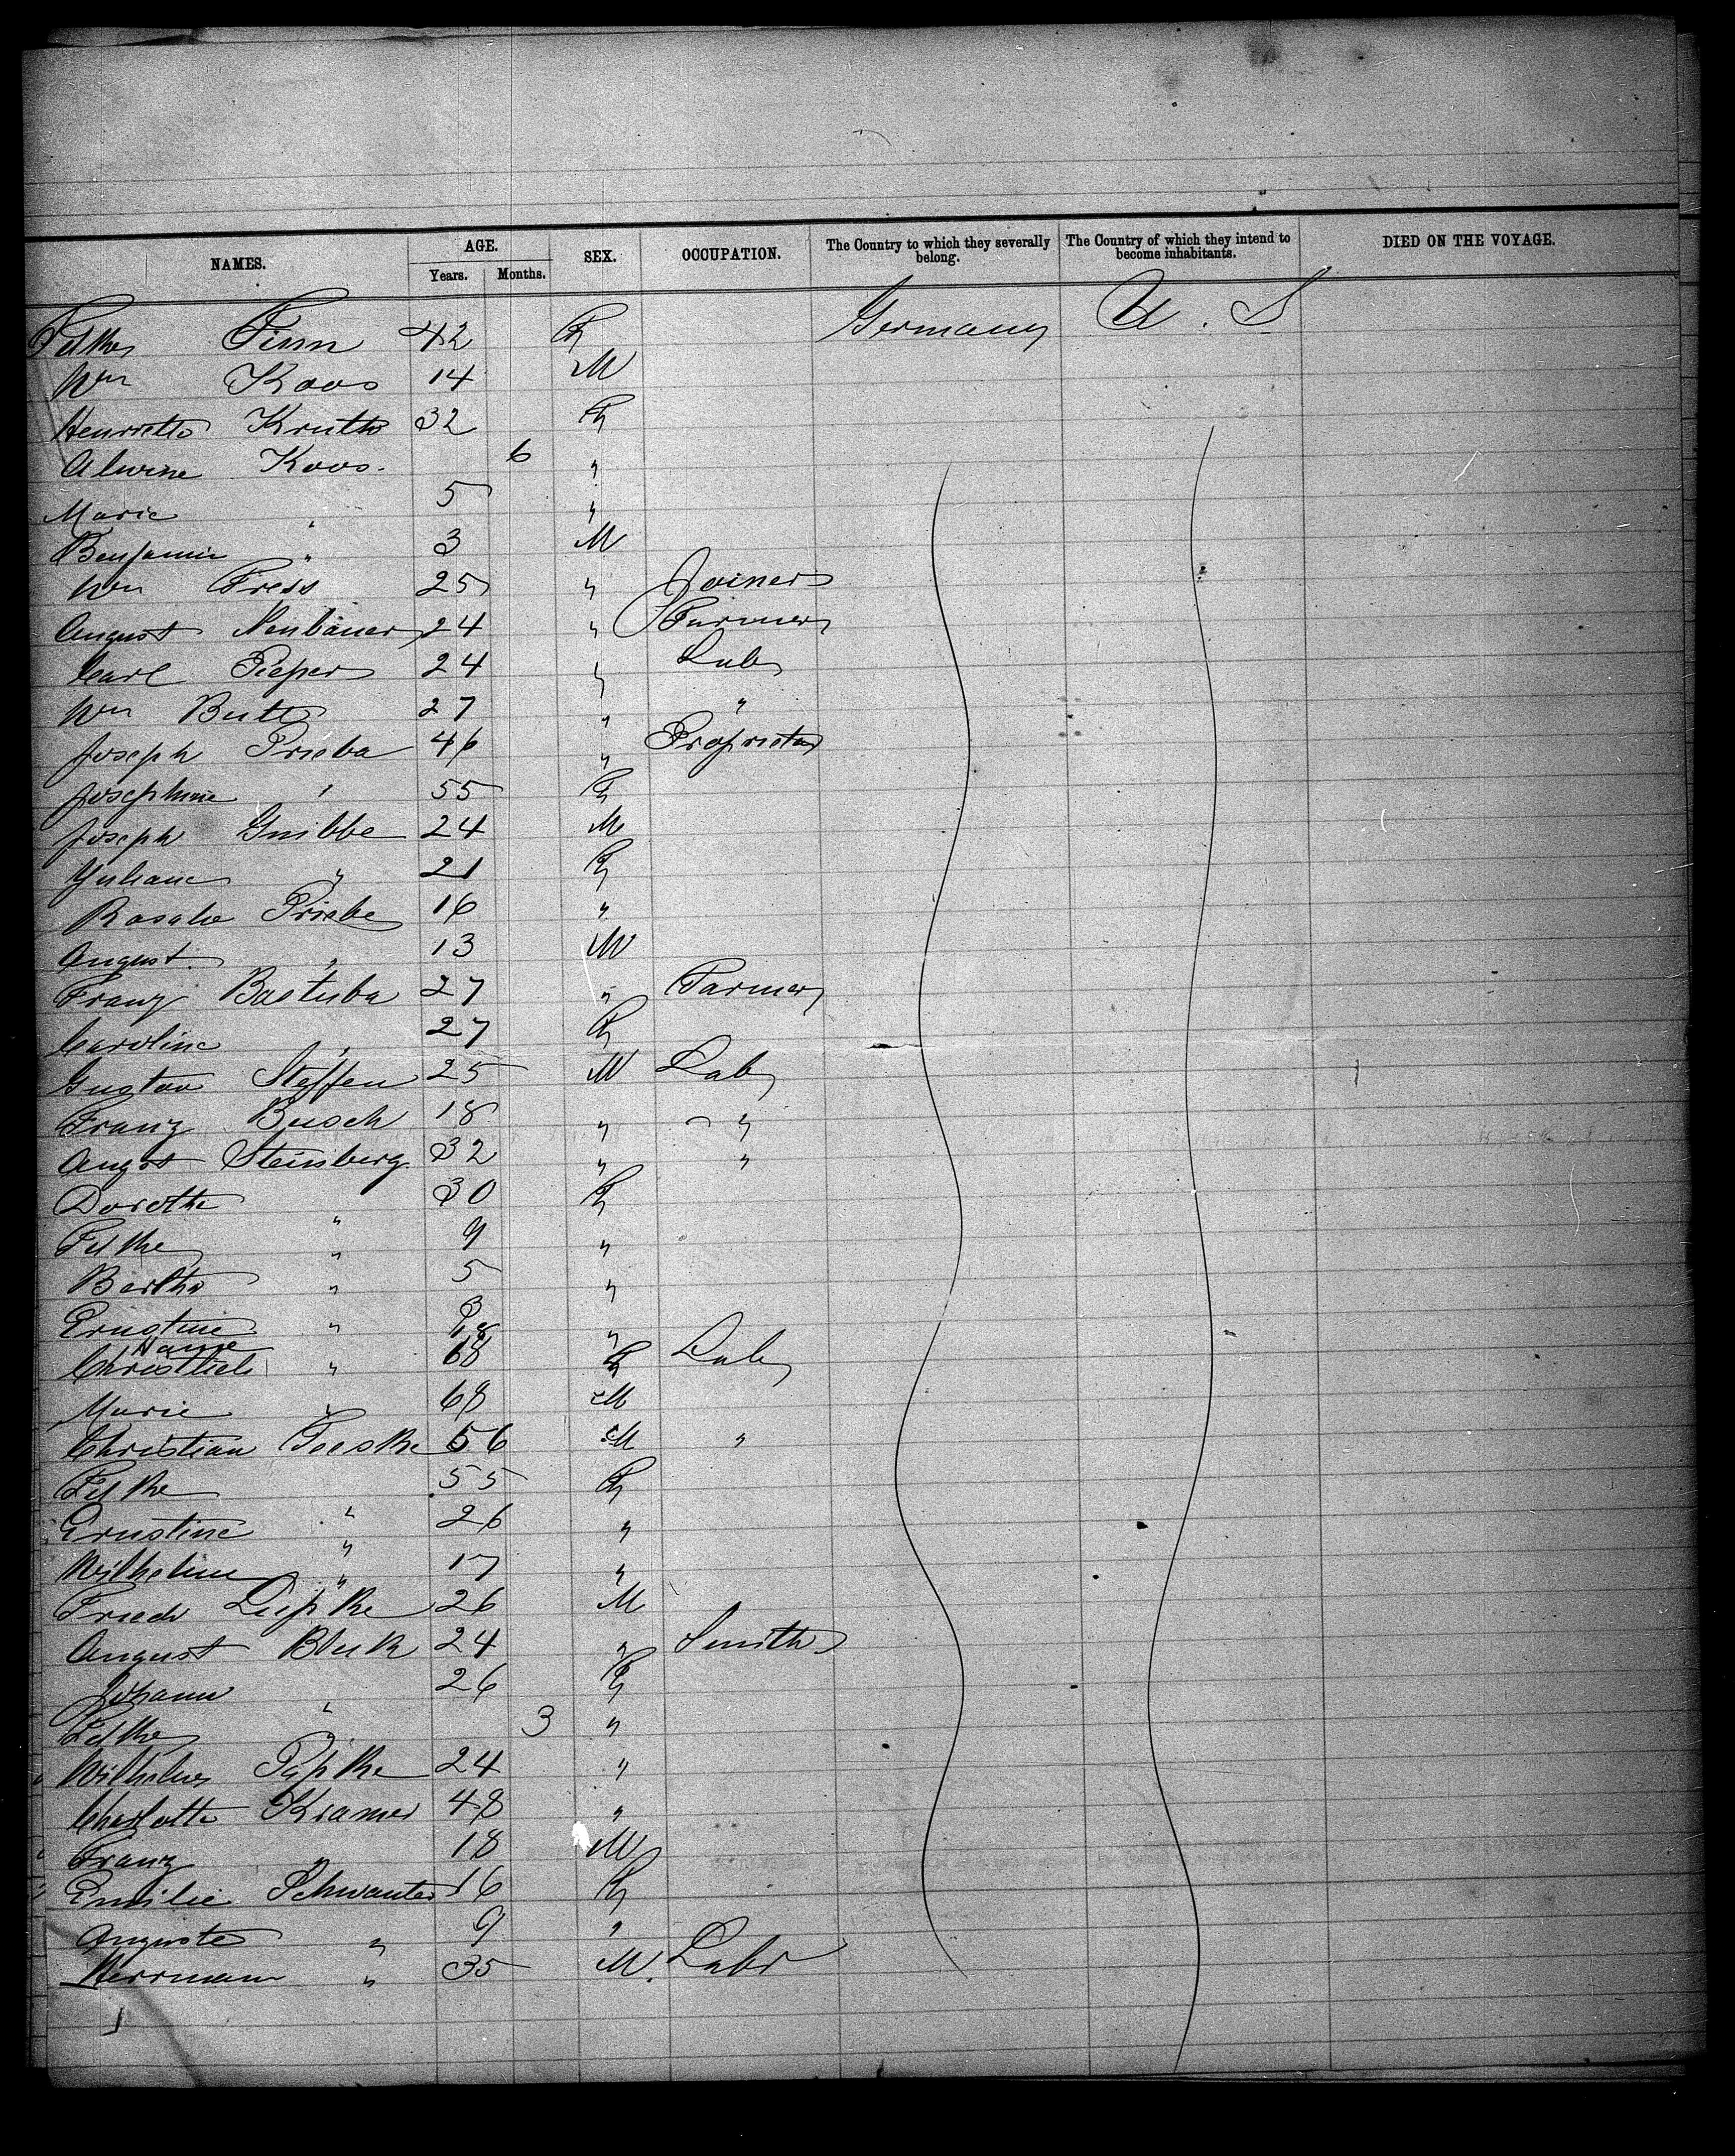 NAMES. AGE. Years. Months. SEX. OCCUPATION. The Country to which they severally belong. The Country of which they intend to become inhabitants. DIED ON THE VOYAGE.
Finn 42 F Germany U. S
Wm Koos 14 M
Henriette 32 F
Alwine Koos. 6 "
Marie " 5 "
Benjamin " 3 M
Wm Fress 25 " Joiner
August Neubauer 24 " Farmer
Carl Pieper 24 " Lab
Wm 27 " "
Joseph Prieba 46 " Proprietor
Josephine " 55 F
Joseph Gnibbe 24 M
Juliane " 21 F
Rosalie Priebe 16 "
August " 13 M
Franz Bastuba 27 " Farmer
Caroline " 27 F
Gustav Steffen 25 M Lab
Franz Busch 18 " "
Augst Steinberg 32 " "
Dorothe " 30 F
" 9 "
Bertha " 5 "
Ernstine " 3 "
Christlieb " 68 F Lab
Marie " 68 M
Christian Teeske 56 M "
" 55 F
Ernstine " 26 "
Wilhelmine " 17 "
Friedr Liepke 26 M
August 24 " Smith
Johann " 26 F
" 3 "
Wilhelm Papke 24 "
Charlotte Kramer 48 "
Franz " 18 M
Emilie Schwantes 16 F
Auguste " 9 "
Herrmann " 35 M. Labr